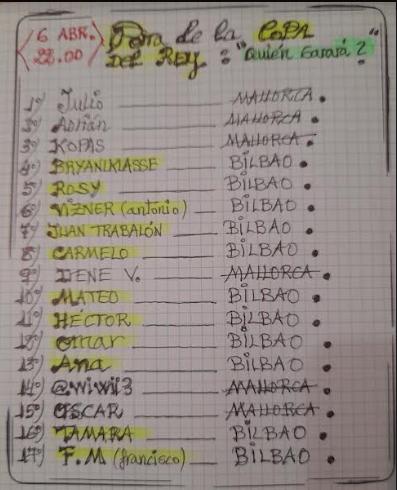 6 ABR. Porra de la COPA
22.00 DEL REY : "Quién Ganará?"
1º) Julio MALLORCA.
2º) Adrián MALLORCA.
3º) KOPAS MALLORCA.
4º) BRYANINIASSE BILBAO.
5º) ROSY BILBAO.
6º) VIZNER (antonio) BILBAO.
7º) JUAN TRABALÓN BILBAO.
8º) CARMELO BILBAO.
9º) IRENE V. MALLORCA.
10º) MATEO BILBAO.
11º) HÉCTOR BILBAO.
12º) Omar BILBAO.
13º) Ana BILBAO.
14º) @wiwii3 MALLORCA.
15º) OSCAR MALLORCA.
16º) TAMARA BILBAO.
17º) F.M (francisco) BILBAO.